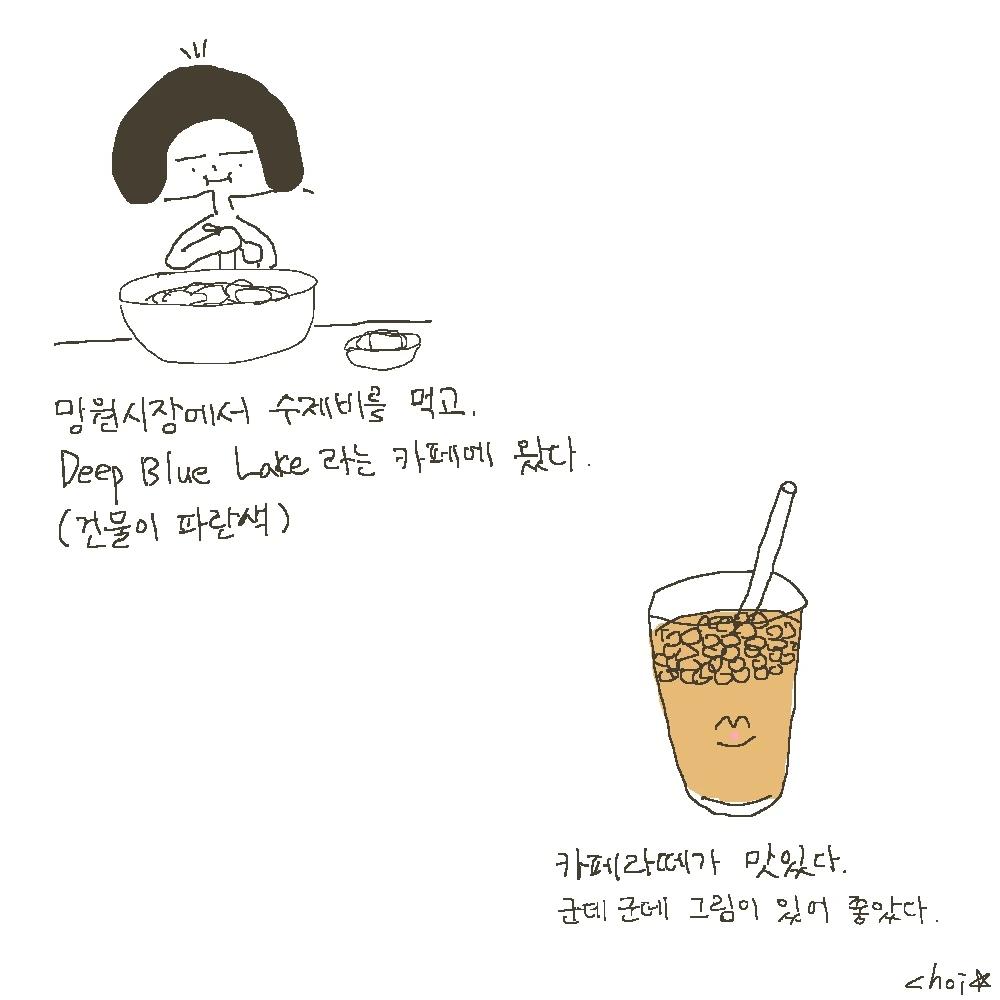 망원시장에서 수제비를 먹고.
Deep Blue Lake 라는 카페에 왔다.
(건물이 파란색)
카페라떼가 맛있다.
군데 군데 그림이 있어 좋았다.
choi☆